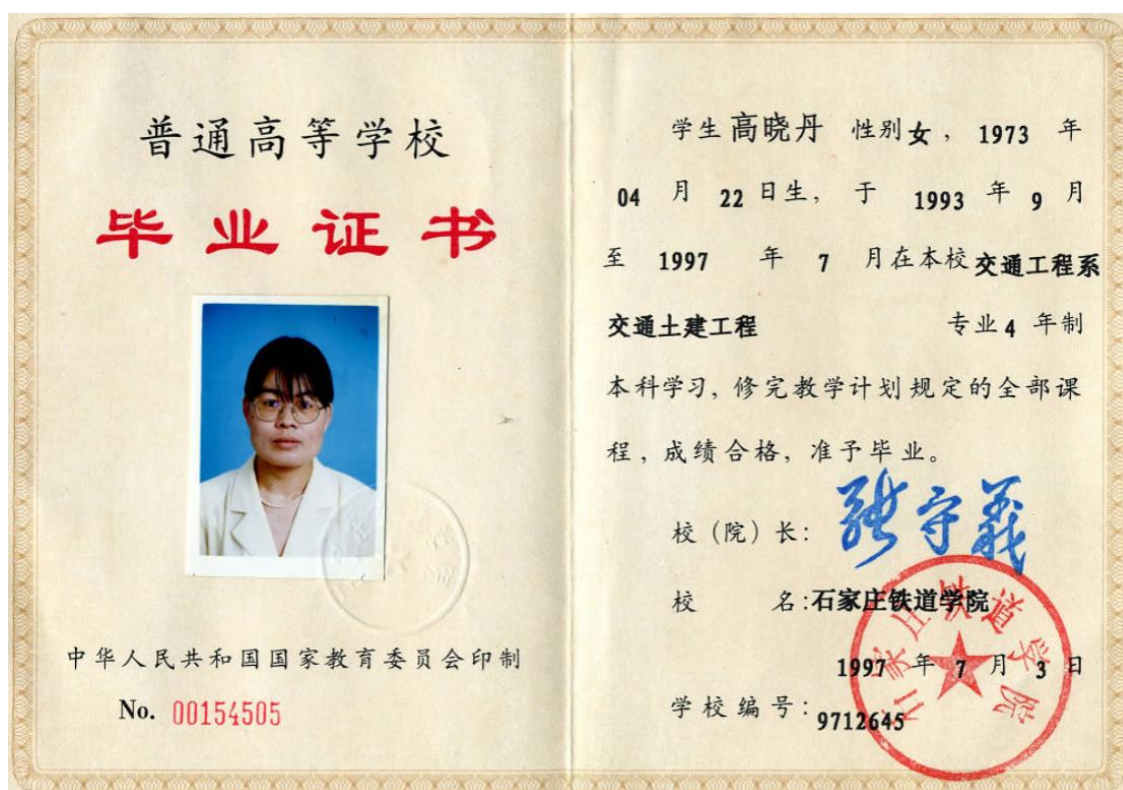 普通高等学校
毕业证书
中华人民共和国国家教育委员会印制
No. 00154505
学生 高晓丹 性别女，1973 年
04 月 22 日生，于 1993 年 9 月
至 1997 年 7 月在本校 交通工程系
交通土建工程 专业 4 年制
本科学习，修完教学计划规定的全部课
程，成绩合格，准予毕业。
校（院）长：张守義
校 名：石家庄铁道学院
1997 年 7 月 3 日
学校编号：9712645
石家庄铁道学院